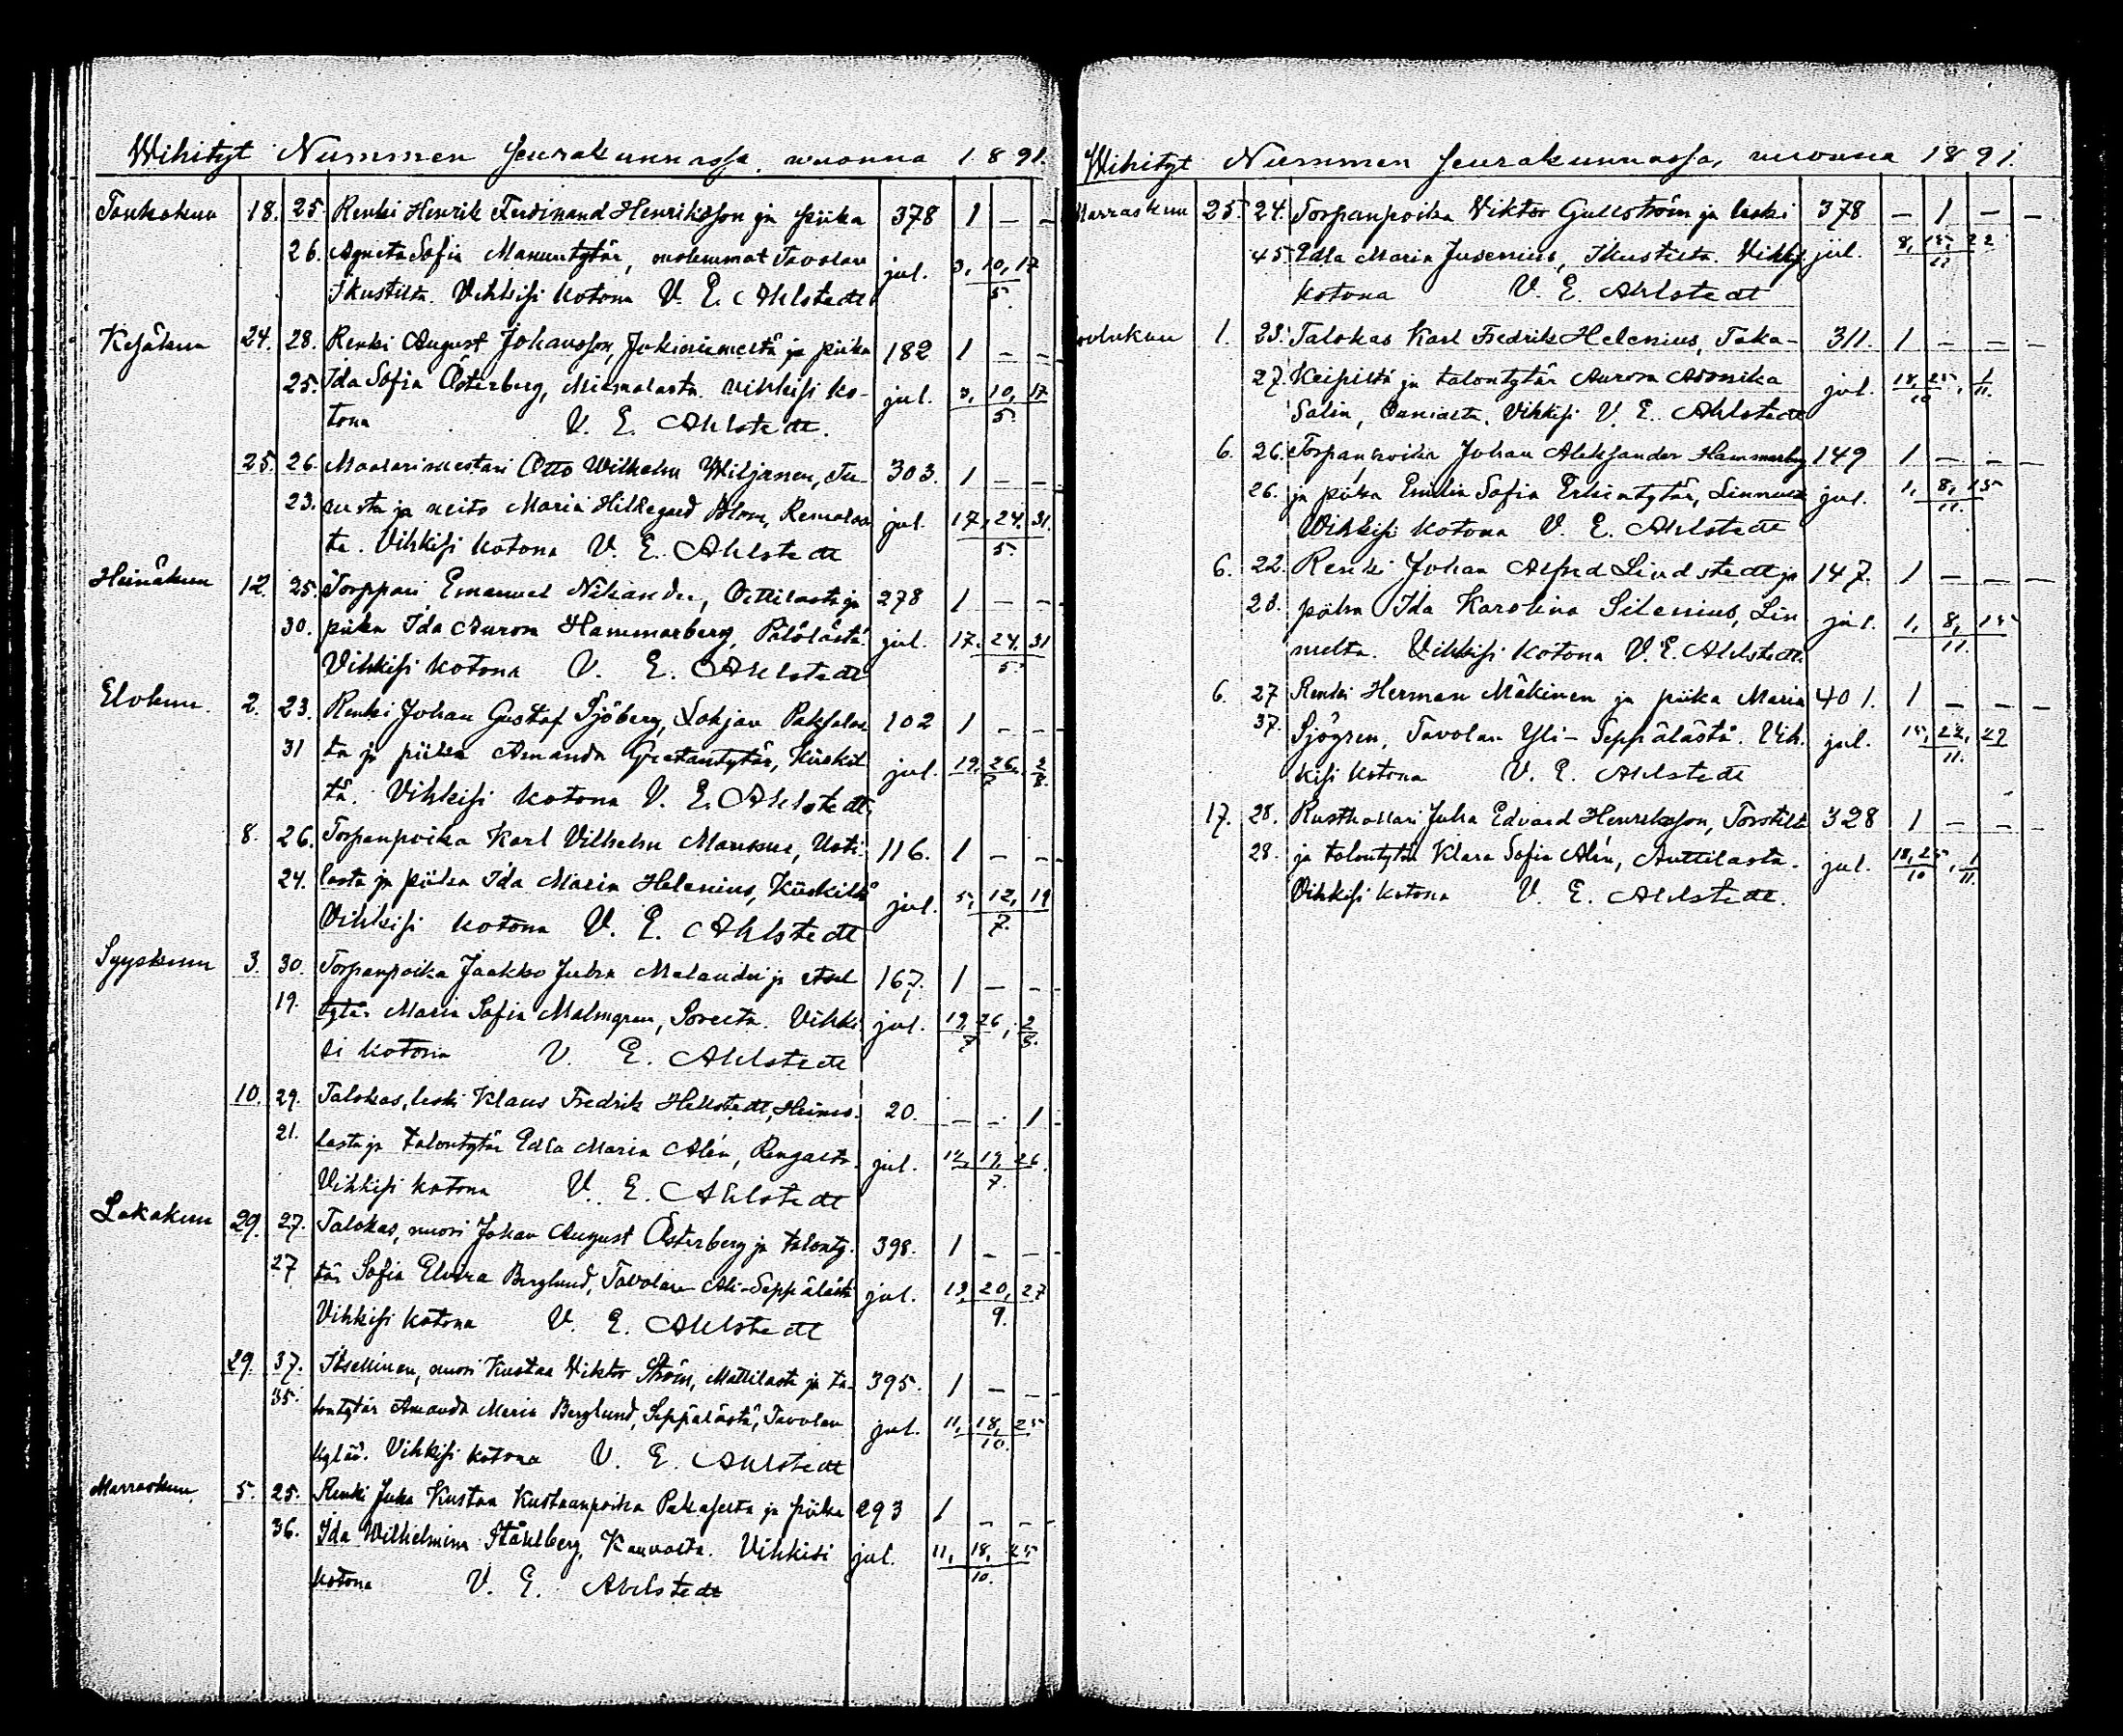 Wihityt Nummen seurakunnassa, vuonna 1891.
Toukokuu 18. 25. Renki Henrik Ferdinand Henriksson ja piika 378 1 — —
26. Agneta Sofia Manuntytär, molemmat Tavolan jul. 3, 10, 17
Ikustilta. Vihkisi kotona V. E. Ahlstedt 5.
Kesäkuu 24. 28. Renki August Johansson, Jokiniemestä ja piika 182 1 — —
25. Ida Sofia Österberg, Miemolasta. Vihkisi ko- jul. 3, 10, 17
tona V. E. Ahlstedt. 5.
25. 26. Maalarimestari Otto Wilhelm Wiljanen, 303. 1 — —
23. ja neito Maria Hildegard Blom, Remalas jul. 17, 24, 31.
ta. Vihkisi kotona V. E. Ahlstedt 5.
Heinäkuu 12. 25. Torppari Emanuel Nikander, Oittilasta ja 278 1 — —
30. piika Ida Aurora Hammarberg, Pälölästä. jul. 17, 24, 31
Vihkisi kotona V. E. Ahlstedt 5.
Elokuu. 2. 23. Renki Johan Gustaf Sjöberg, Lohjan Paksalos 102 1 — —
31 ta ja piika Amanda Gretantytär, Kiiskil jul. 19, 26, 2
tä. Vihkisi kotona V. E. Ahlstedt. 7 8.
8. 26. Torpanpoika Karl Vilhelm Manssus, Uoti 116. 1 — —
24. lasta ja piika Ida Maria Helenius, Kiiskiltä jul. 5, 12, 19
Vihkisi kotona V. E. Ahlstedt 7.
Syyskuu 3. 30. Torpanpoika Jaakko Juha Melander ja 167. 1 — —
19. tytär Maria Sofia Malmgren, Vihki jul. 19, 26, 2
si kotona V. E. Ahlstedt 7 8.
10. 29. Talokas, leski Klaus Fredrik Hellstedt, Heimo. 20. — — 1
21. lasta ja talontytär Edla Maria Alén, Rengasta. jul. 12, 19, 26.
Vihkisi kotona V. E. Ahlstedt 7.
Lokakuu 29. 27. Talokas, nuori Johan August Österberg ja talonty- 398. 1 — —
27 tär Sofia Elvira Berglund, Tavolan Ali-Seppälästä jul. 13, 20, 27
Vihkisi kotona V. E. Ahlstedt 9.
29. 37. Itsellinen, nuori Kustaa Viktor Ström, Mattilasta ja ta- 395. 1 — —
35. lontytär Amanda Maria Berglund, Seppälästä, Tavolan jul. 11, 18, 25
kylää. Vihkisi kotona V. E. Ahlstedt 10.
Marraskuu 5. 25. Renki Juha Kustaa Kustaanpoika ja piika 293 1 — —
36. Ida Wilhelmina Ståhlberg, Vihkisi jul. 11, 18, 25
kotona V. E. Ahlstedt 10.
Wihityt Nummen seurakunnassa, vuonna 1891.
Marraskuu 25. 24. Torpanpoika Viktor Gullström ja leski 378 — 1 — —
45. Edla Maria Jusenius, Ikustilta. Vihki jul. 8, 15, 22
kotona V. E. Ahlstedt 11
Joulukuu 1. 23. Talokas Karl Fredrik Helenius, Taka- 311. 1 — — —
27. Keipiltä ja talontytär Aurora Aronika jul. 18, 25, 1
Salin, Vihkisi V. E. Ahlstedt 10 11.
6. 26. Torpanpoika Johan Aleksander Hammarberg 149 1 — — —
26. ja piika Emilia Sofia Erkintytär, jul. 1, 8, 15
Vihkisi kotona V. E. Ahlstedt 11.
6. 22. Renki Johan Alfred Lindstedt ja 147. 1 — — —
28. piika Ida Karolina Silenius, Lin jul. 1, 8, 15
nulta. Vihkisi kotona V. E. Ahlstedt. 11.
6. 27 Renki Herman Mäkinen ja piika Maria 401. 1 — — —
37. Sjögren, Tavolan Yli-Seppälästä. Vih- jul. 15, 22, 29
kisi kotona V. E. Ahlstedt 11.
17. 28. Rusthollari Juha Edvard Henriksson, Torstilta 328 1 — — —
28. ja talontytär Klara Sofia Alén, Anttilasta. jul. 18, 25, 1
Vihkisi kotona V. E. Ahlstedt. 10 11.